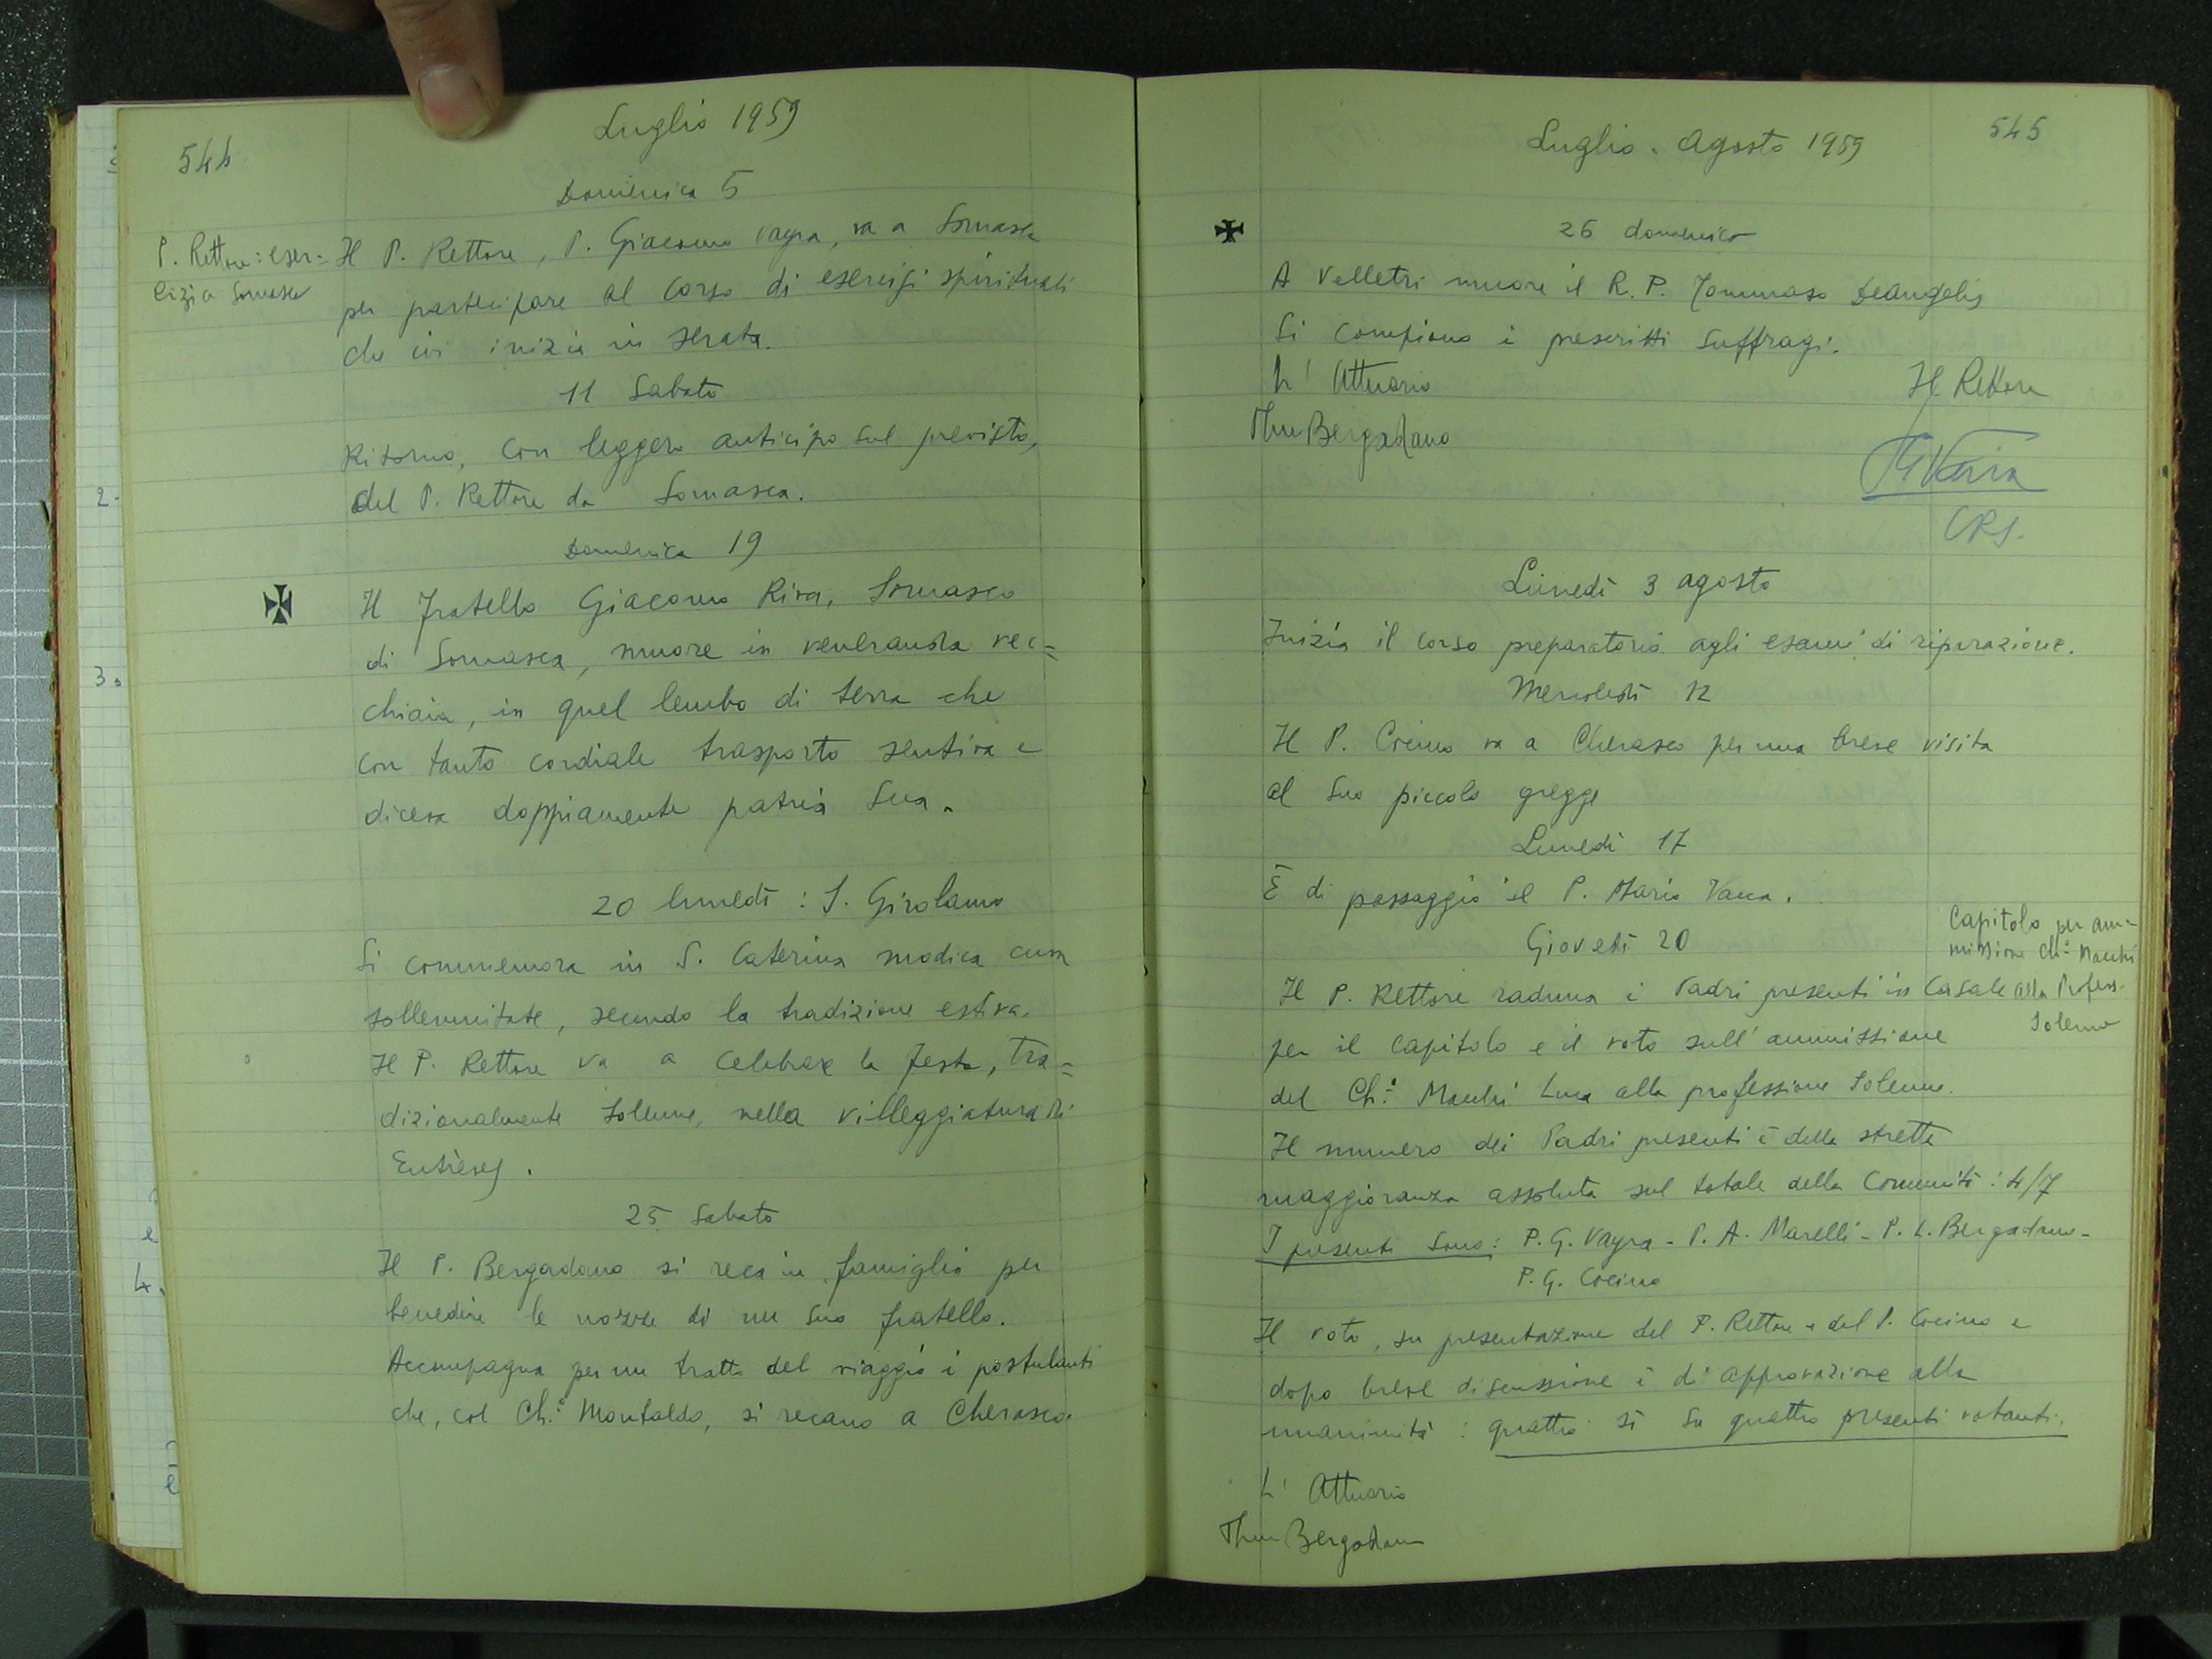 544
Luglio 1959
Domenica 5
P. Rettore: eser=
cizi a Somasca
Il P. Rettore, P. Giacomo Vayra, va a Somasca
per partecipare al corso di esercizi spirituali
che ivi inizia in serata.
11 Sabato
Ritorno, con leggero anticipo sul previsto,
del P. Rettore da Somasca.
Domenica 19
Il Fratello Giacomo Riva, Somasco
di Somasca, muore in veneranda vec=
chiaia, in quel lembo di terra che
con tanto cordiale trasporto sentiva e
diceva doppiamente patria sua.
20 lunedì: S. Girolamo
Si commemora in S. Caterina modica cum
sollemnitate, secondo la tradizione estiva.
Il P. Rettore va a celebrare la festa, tra=
dizionalmente solenne, nella villeggiatura di
Entrèves.
25 Sabato
Il P. Bergadano si reca in famiglia per
benedire le nozze di un suo fratello.
Accompagna per un tratto del viaggio i postulanti
che, col Ch.° Montaldo, si recano a Cherasco.
545
Luglio - Agosto 1959
26 domenica
A Velletri muore il R. P. Tommaso DeAngelis
Si compiono i prescritti suffragi.
L' Attuario
Il Rettore
Bergadano
CRS.
Lunedì 3 agosto
Inizia il corso preparatorio agli esami di riparazione.
Mercoledì 12
Il P. Cocino va a Cherasco per una breve visita
al suo piccolo gregge
Lunedì 17
È di passaggio il P. Mario Vacca.
Giovedì 20
Capitolo per am=
missione Ch.° Macchi
alla Profess.
Solenne
Il P. Rettore raduna i Padri presenti in Casa
per il Capitolo e il voto sull'ammissione
del Ch.° Macchi Luca alla professione Solenne.
Il numero dei Padri presenti è della stretta
maggioranza assoluta sul totale della Comunità: 4/7
I presenti sono: P. G. Vayra - P. A. Marelli - P. L. Bergadano -
P. G. Cocino
Il voto, su presentazione del P. Rettore e del P. Cocino e
dopo breve discussione è di approvazione alla
unanimità: quattro sì su quattro presenti votanti.
L' Attuario
Bergadano